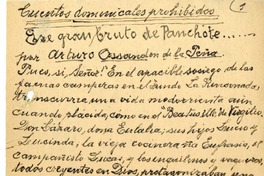 Cuentos dominicales prohibidos (1
Ese gran bruto de Panchote......
por Arturo Ossandon de la Peña
Pues, sí, Señor! En el apacible sosiego de las
faenas camperas en el fundo La Rinconada
transcurría una vida modorrienta aun
cuando plácida, como en el "Beatus ille" de Virgilio
Don Lázaro, dona Eulalia; sus hijos Lauro y
Lucinda, la vieja cocinera ña Eufrasia, el
campañisto Lucas, y los inquilinos y
todos creyentes en Dios, protagonizaban